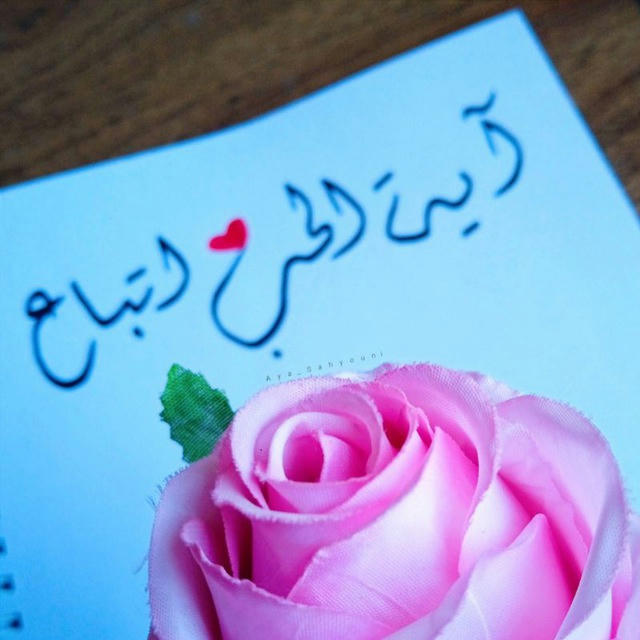 آية الحب اتباع
Aya_Sahyouni